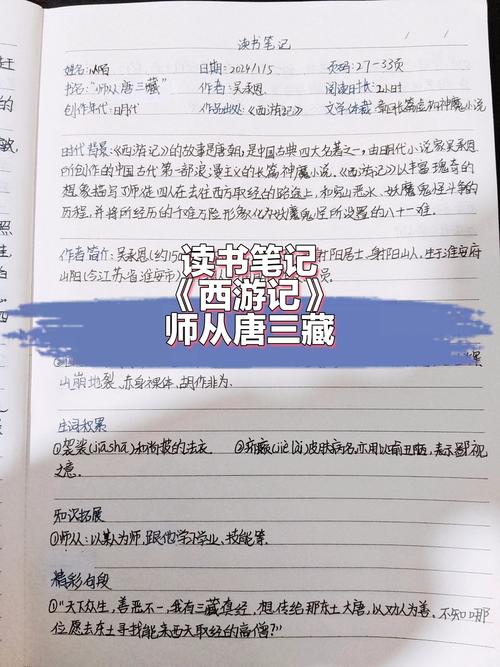 读书笔记
姓名: 从陌 日期: 2024/1/15 页码: 27-33页
书名: "师从唐三藏" 作者: 吴承恩 阅读时长: 2小时
创作年代: 明代 作品出处: 《西游记》 文学体裁: 章回长篇白话神魔小说
时代背景: 《西游记》的故事是唐朝, 是中国古典四大名著之一, 由明代小说家吴承恩
所创作的中国古代第一部浪漫主义的长篇神魔小说,《西游记》以丰富瑰奇的
想象描写了师徒四人在去往西方取经的路途上, 和穷山恶水、妖魔鬼怪斗争的
历程, 并将所经历的千难万险形象化为妖魔鬼怪所设置的八十一难.
作者简介: 吴承恩(约15 射阳居士、射阳山人, 生于淮安府
山阳(今江苏省淮安市)
读书笔记
《西游记》
师从唐三藏
山崩地裂, 赤身裸体, 胡作非为.
生词积累
①袈裟(jiā shā)和尚披的法衣. ②疥癞(jiè lài)皮肤病名, 亦用以喻丑陋, 表示鄙视
之意.
知识拓展
①师从: 以某人为师, 跟他学习学业、技能等.
精彩句段
①"天下众生, 善恶不一, 我有三藏真经, 想传给那东土大唐, 以劝人为善, 不知哪
位愿去东土寻找能来西天取经的高僧?"